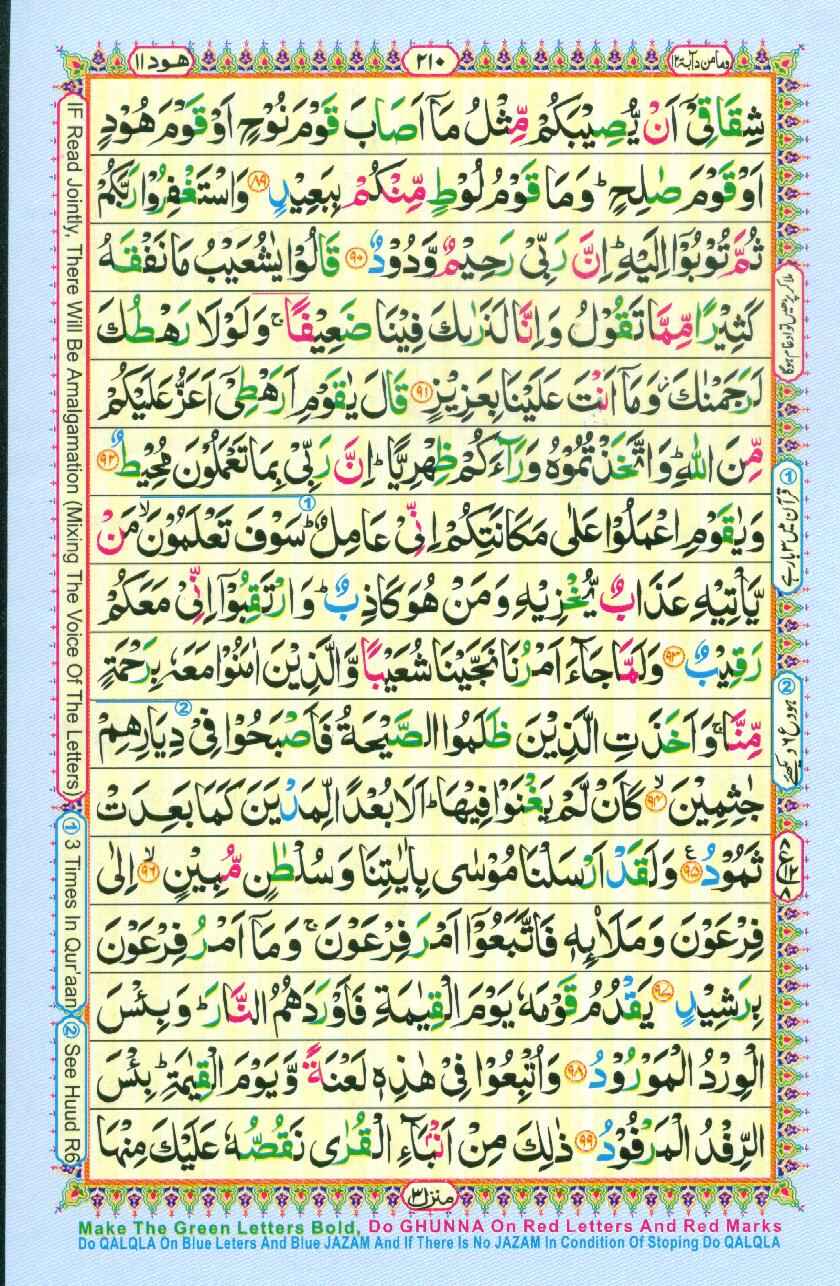 ومامن دآبة ۱۲ ۲۱۰ هود ۱۱
شِقَاقِيْۤ اَنْ يُّصِيْبَكُمْ مِّثْلُ مَاۤ اَصَابَ قَوْمَ نُوْحٍ اَوْ قَوْمَ هُوْدٍ
اَوْ قَوْمَ صٰلِحٍ ؕ وَمَا قَوْمُ لُوْطٍ مِّنْكُمْ بِبَعِيْدٍ ﴿۸۹﴾ وَاسْتَغْفِرُوْا رَبَّكُمْ
ثُمَّ تُوْبُوْۤا اِلَيْهِ ؕ اِنَّ رَبِّيْ رَحِيْمٌ وَّدُوْدٌ ﴿۹۰﴾ قَالُوْا يٰشُعَيْبُ مَا نَفْقَهُ
كَثِيْرًا مِّمَّا تَقُوْلُ وَاِنَّا لَنَرٰىكَ فِيْنَا ضَعِيْفًا ۚ وَلَوْلَا رَهْطُكَ
لَرَجَمْنٰكَ ؗ وَمَاۤ اَنْتَ عَلَيْنَا بِعَزِيْزٍ ﴿۹۱﴾ قَالَ يٰقَوْمِ اَرَهْطِيْۤ اَعَزُّ عَلَيْكُمْ
مِّنَ اللّٰهِ ؕ وَاتَّخَذْتُمُوْهُ وَرَآءَكُمْ ظِهْرِيًّا ؕ اِنَّ رَبِّيْ بِمَا تَعْمَلُوْنَ مُحِيْطٌ ﴿۹۲﴾
وَيٰقَوْمِ اعْمَلُوْا عَلٰى مَكَانَتِكُمْ اِنِّيْ عَامِلٌ ؕ سَوْفَ تَعْلَمُوْنَ ۙ مَنْ
يَّاْتِيْهِ عَذَابٌ يُّخْزِيْهِ وَمَنْ هُوَ كَاذِبٌ ؕ وَارْتَقِبُوْۤا اِنِّيْ مَعَكُمْ
رَقِيْبٌ ﴿۹۳﴾ وَلَمَّا جَآءَ اَمْرُنَا نَجَّيْنَا شُعَيْبًا وَّالَّذِيْنَ اٰمَنُوْا مَعَهٗ بِرَحْمَةٍ
مِّنَّا ۚ وَاَخَذَتِ الَّذِيْنَ ظَلَمُوا الصَّيْحَةُ فَاَصْبَحُوْا فِيْ دِيَارِهِمْ
جٰثِمِيْنَ ﴿۹۴﴾ ۙ كَاَنْ لَّمْ يَغْنَوْا فِيْهَا ؕ اَلَا بُعْدًا لِّمَدْيَنَ كَمَا بَعِدَتْ
ثَمُوْدُ ﴿۹۵﴾ ع وَلَقَدْ اَرْسَلْنَا مُوْسٰى بِاٰيٰتِنَا وَسُلْطٰنٍ مُّبِيْنٍ ﴿۹۶﴾ ۙ اِلٰى
فِرْعَوْنَ وَمَلَا۟ئِهٖ فَاتَّبَعُوْۤا اَمْرَ فِرْعَوْنَ ۚ وَمَاۤ اَمْرُ فِرْعَوْنَ
بِرَشِيْدٍ ﴿۹۷﴾ يَقْدُمُ قَوْمَهٗ يَوْمَ الْقِيٰمَةِ فَاَوْرَدَهُمُ النَّارَ ؕ وَبِئْسَ
الْوِرْدُ الْمَوْرُوْدُ ﴿۹۸﴾ وَاُتْبِعُوْا فِيْ هٰذِهٖ لَعْنَةً وَّيَوْمَ الْقِيٰمَةِ ؕ بِئْسَ
الرِّفْدُ الْمَرْفُوْدُ ﴿۹۹﴾ ذٰلِكَ مِنْ اَنْۢبَآءِ الْقُرٰى نَقُصُّهٗ عَلَيْكَ مِنْهَا
منزل ۳
IF Read Jointly, There Will Be Amalgamation (Mixing The Voice Of The Letters)
① 3 Times In Qur'aan ② See Huud R6
ملا کر پڑھیں تو ادغام ہوگا
① قرآن میں ۳ بار ہے
② ہود رع ۶ دیکھئے
Make The Green Letters Bold, Do GHUNNA On Red Letters And Red Marks
Do QALQLA On Blue Leters And Blue JAZAM And If There Is No JAZAM In Condition Of Stoping Do QALQLA